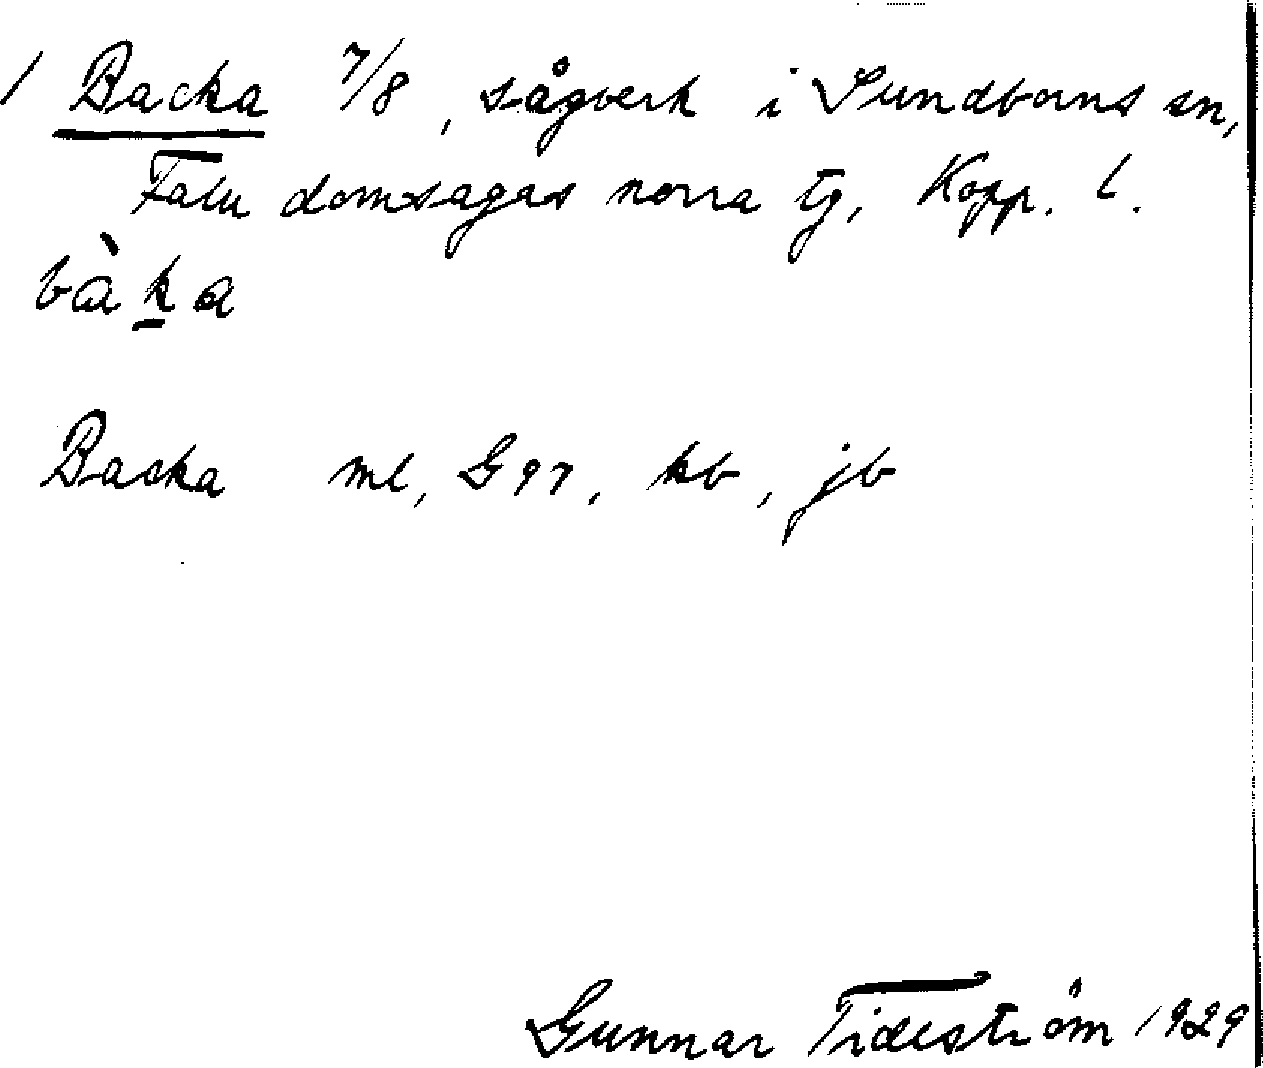 / Backa 7/8, sågverk i Sundborns sn,
Falu domsagas norra tg, Kopp. l.
bàka
Backa ml, G97, kb, jb
Gunnar Tideström 1929